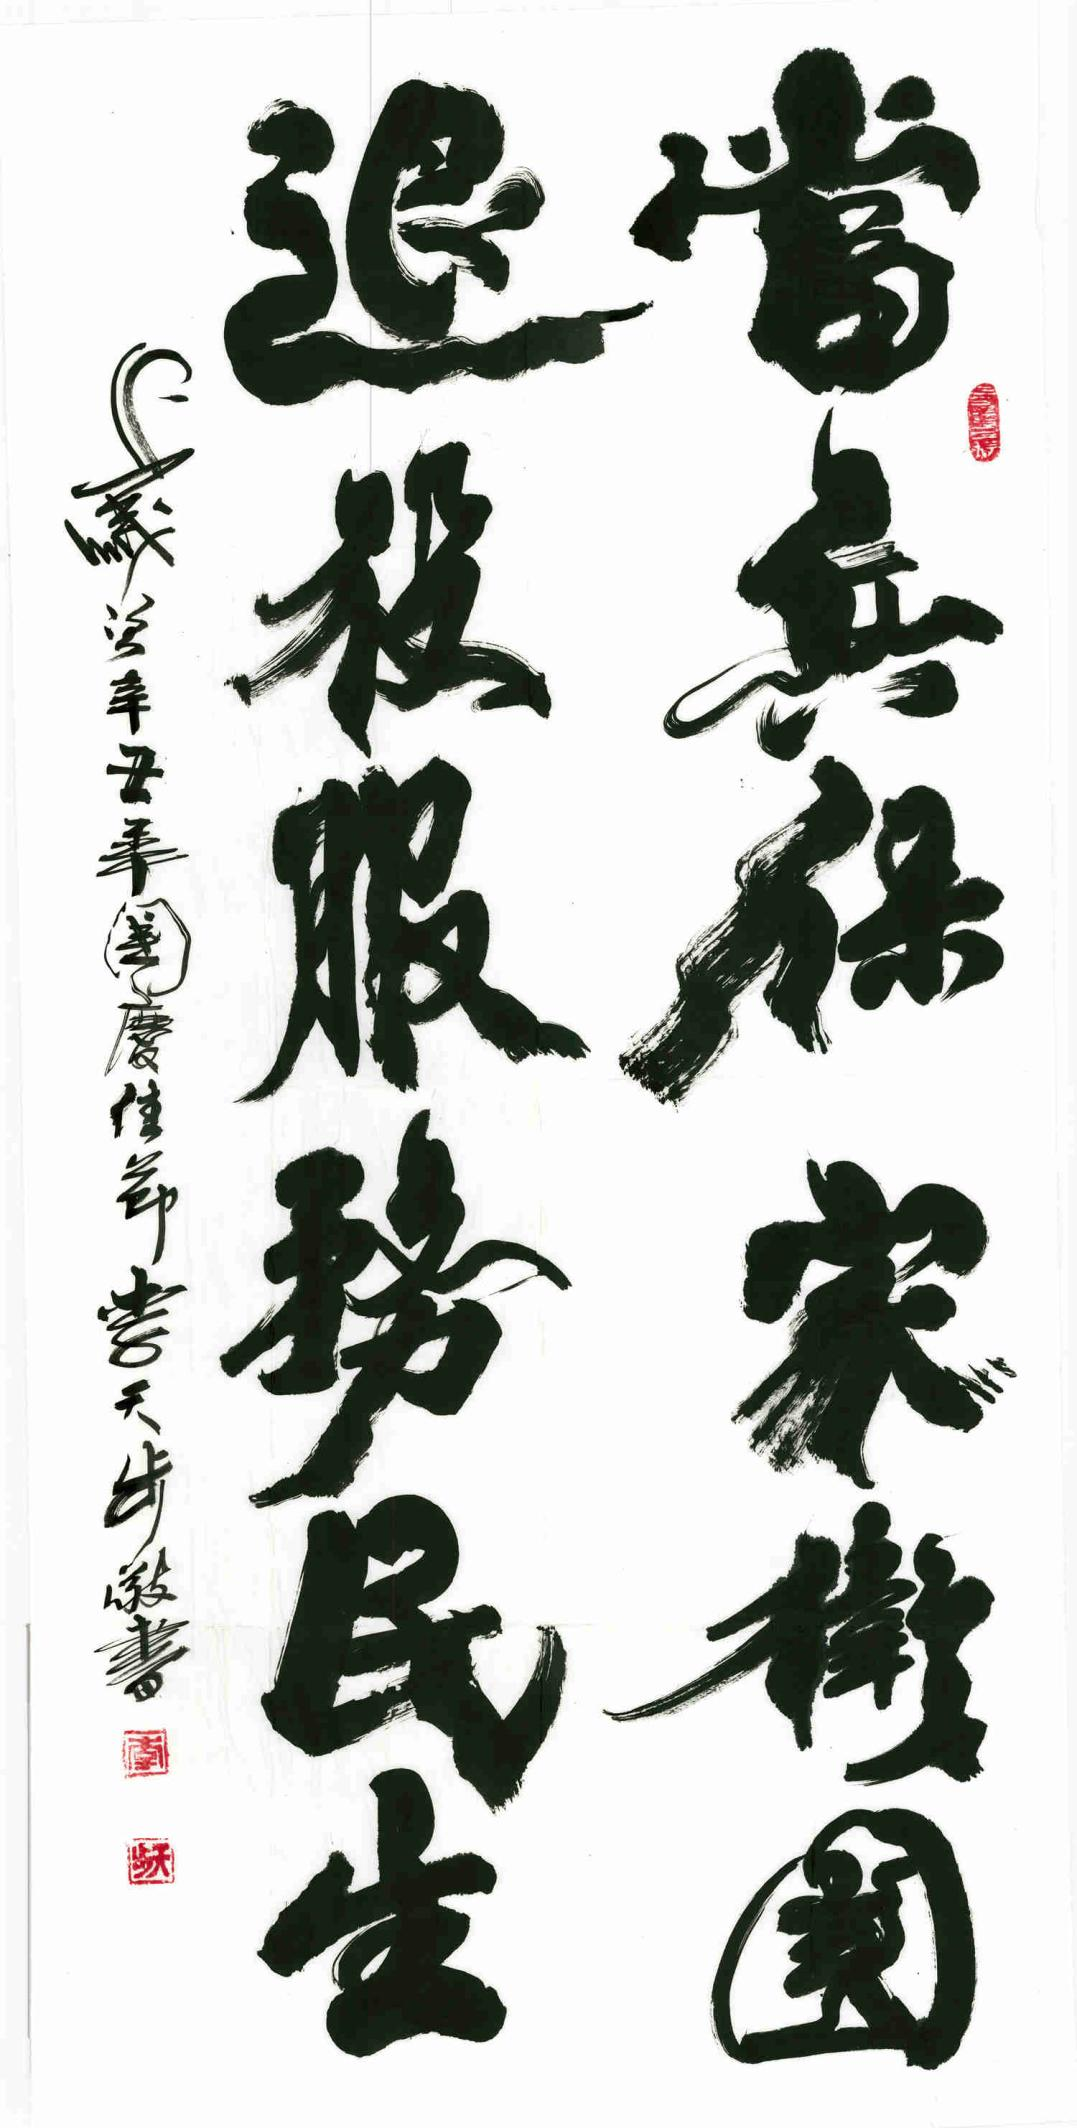 當兵保家衛國
退役服務民生
歲次辛丑年國慶佳節李天步敬書
李